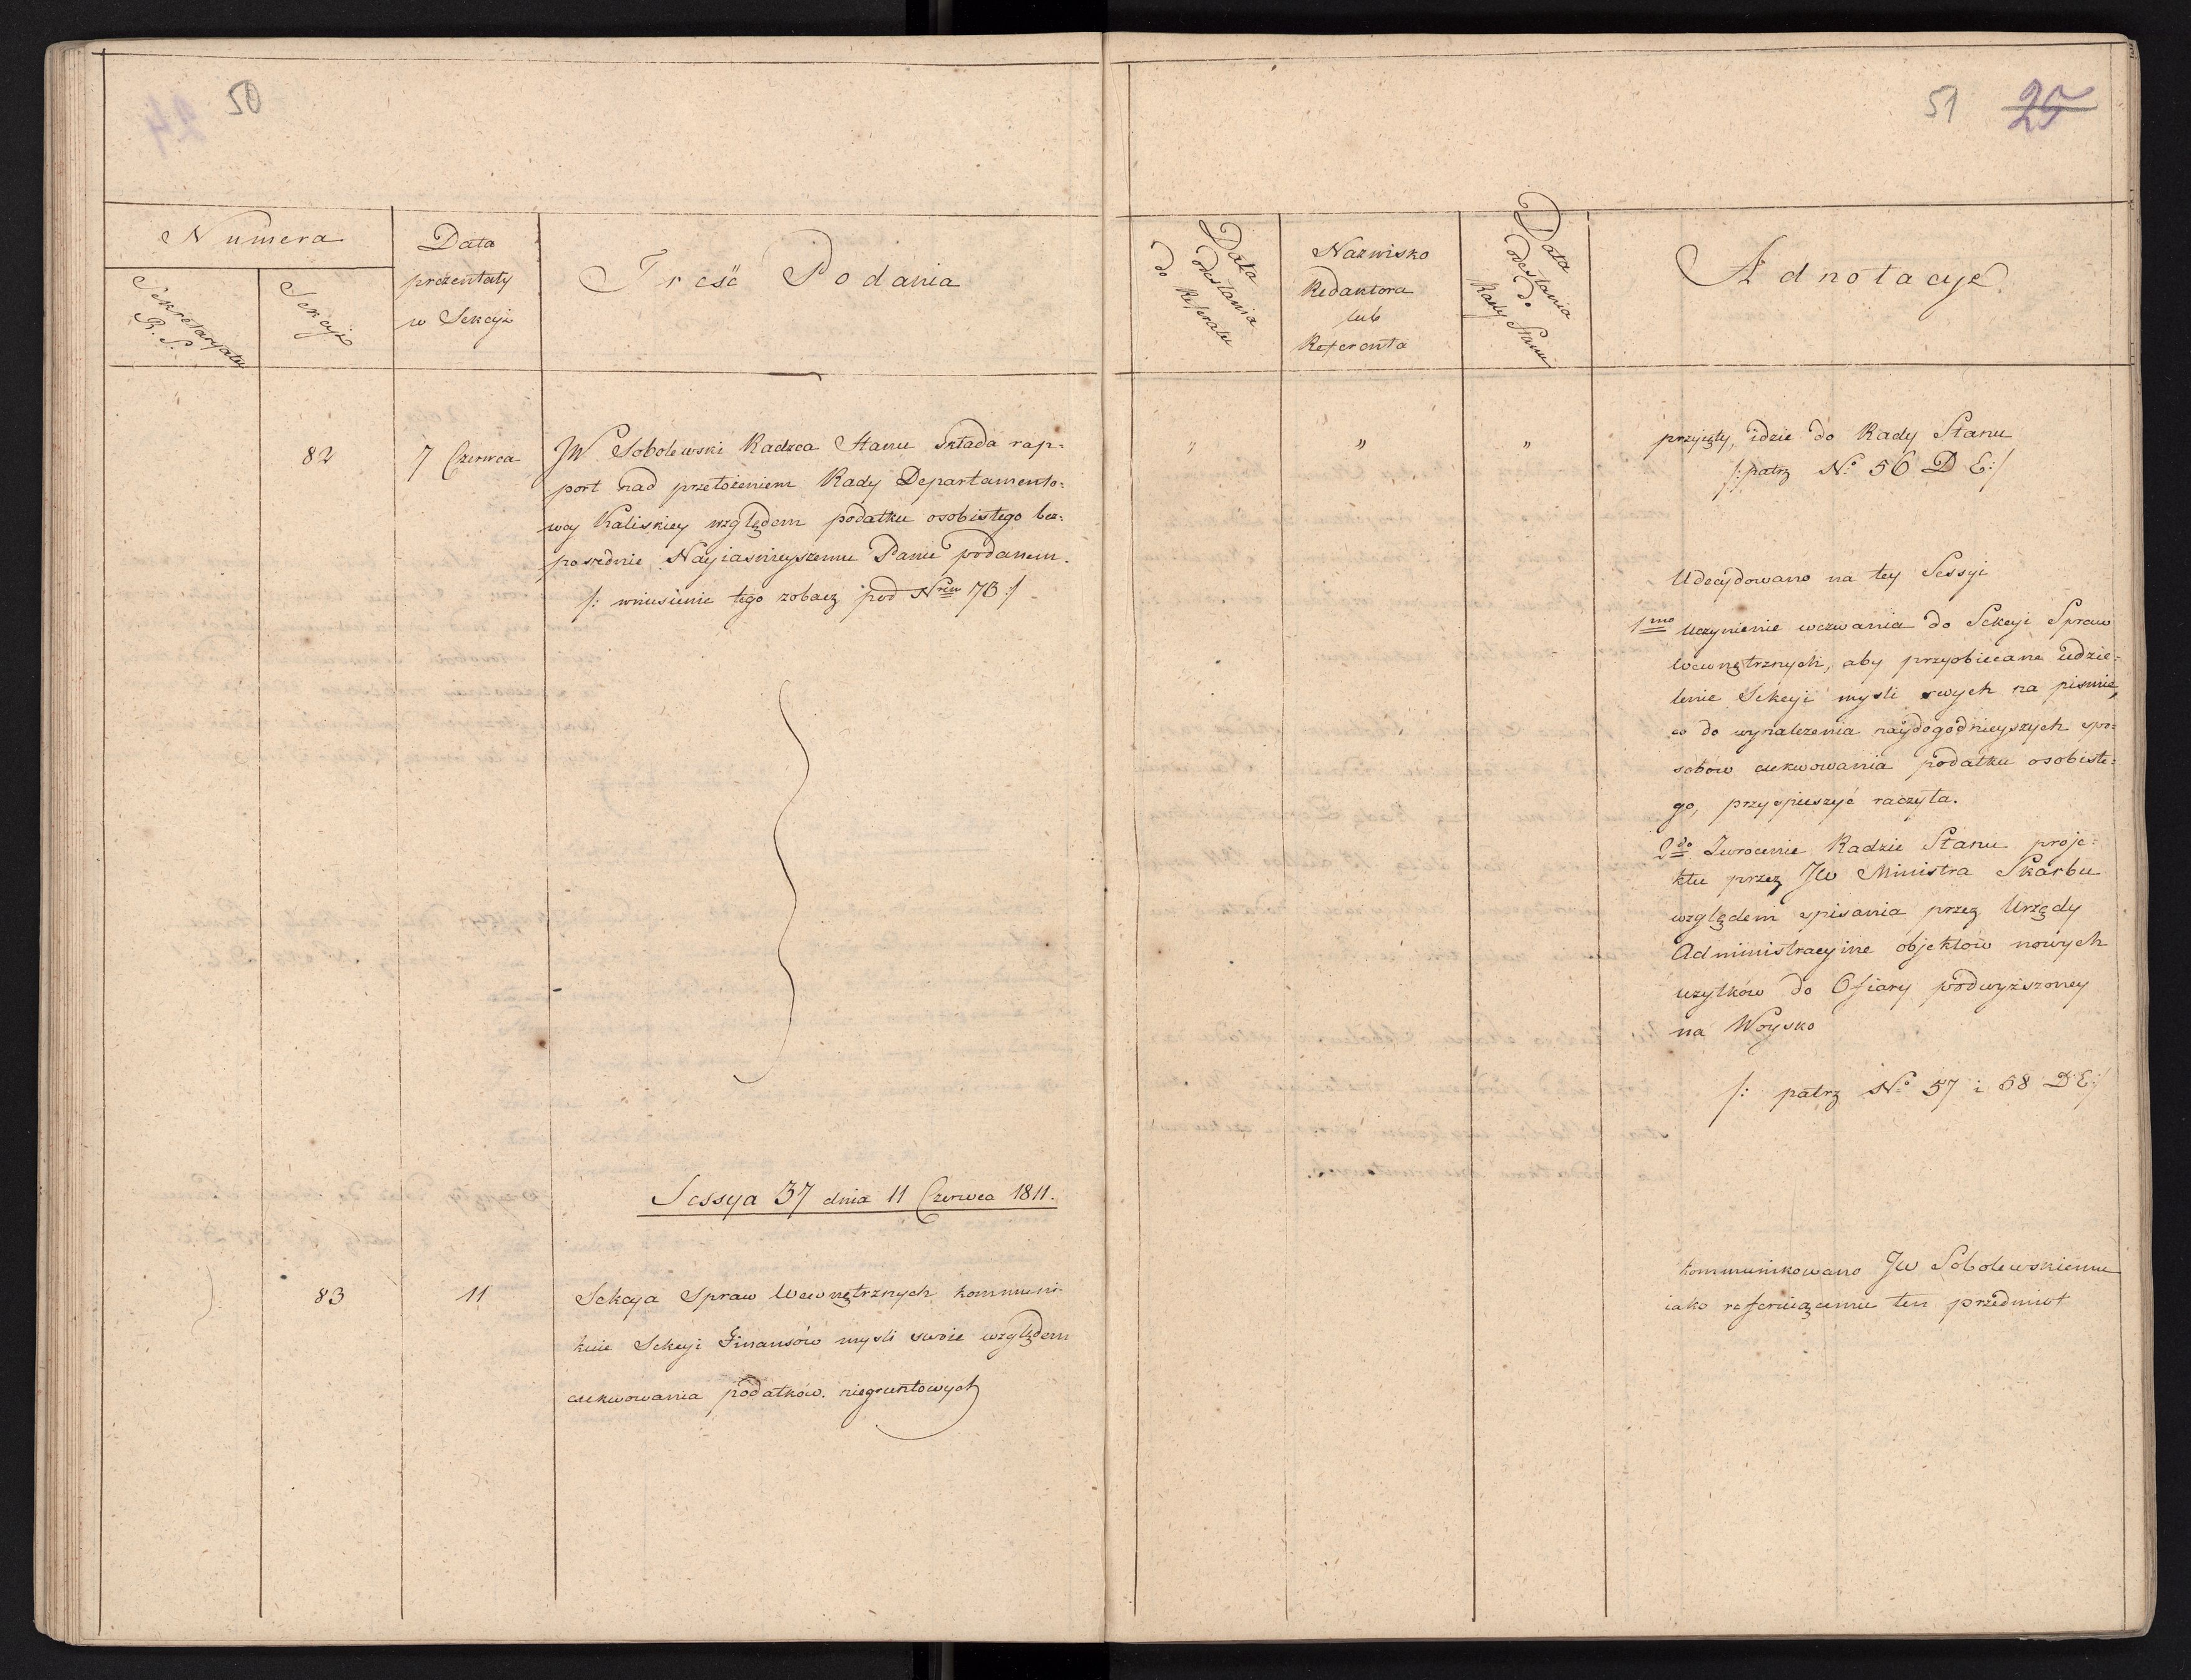 50
Numera
Sekretaryatu
R. S.
Sekcyi
Data
prezentaty
w Sekcyi
Treść Podania
82
7 Czerwca
JW Sobolewski Radzca Stanu składa rap=
port nad przełożeniem Rady Departamento=
wey Kaliskiey względem podatku osobistego bez=
posrednie Nayiasnieyszemu Panu podanem.
/: wniesienie tego zobacz pod Nrem 76 :/
Sessya 37 dnia 11 Czerwca 1811.
83
11
Sekcya Spraw Wewnętrznych kommuni=
kuie Sekcyi Finansów mysli swoie względem
exekwowania podatków niegruntowych
51 25
Data
odesłania
do Referatu
Nazwisko
Redaktora
lub
Referenta
Data
odesłania
do
Rady Stanu
Adnotacye
„ „ „
przyięty, idzie do Rady Stanu
/: patrz No 56 D E :/
Udecydowano na tey Sessyi
1mo Uczynienie wezwania do Sekcyi Spraw
Wewnętrznych, aby przyobiecane udzie=
lenie Sekcyi mysli swych na pismie,
co do wynalezenia naydogodnieyszych spo=
sobow exekwowania podatku osobiste=
go, przyspieszyć raczyła.
2do Zwrocenie Radzie Stanu proje=
ktu przez JW Ministra Skarbu
względem spisania przez Urzędy
Administracyine objektow nowych
użytków do Ofiary podwyższoney
na Woysko
/: patrz No 57 i 58 D E :/
kommunikowano JW Sobolewskiemu
iako referuiącemu ten przedmiot